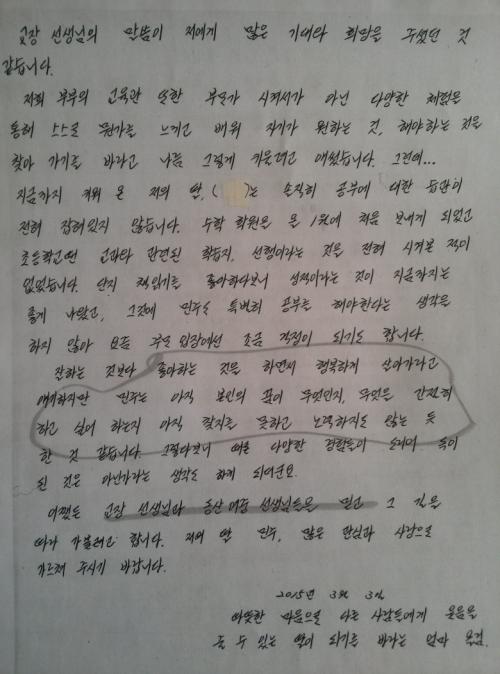 교장 선생님의 말씀이 저에게 많은 기대와 희망을 주셨던 것
같습니다.
저희 부부의 교육관 또한 부모가 시켜서가 아닌 다양한 체험을
통해 스스로 뭔가를 느끼고 배워 자기가 원하는 것, 해야하는 것을
찾아 가기를 바라고 나름 그렇게 키울려고 애썼습니다. 그런데...
지금까지 키워 온 저의 딸, ( )는 솔직히 공부에 대한 습관이
전혀 잡혀있지 않습니다. 수학 학원을 올 1월에 처음 보내게 되었고
초등학교땐 교과와 관련된 학습지, 선행이라는 것을 전혀 시켜본 적이
없었습니다. 단지 책읽기를 좋아하다보니 성적이라는 것이 지금까지는
좋게 나왔고, 그것에 민주도 특별히 공부를 해야한다는 생각을
하지 않아 요즘 부모 입장에선 조금 걱정이 되기도 합니다.
잘하는 것보다 좋아하는 것을 하면서 행복하게 살아가라고
얘기하지만 민주는 아직 본인의 꿈이 무엇인지, 무엇을 간절히
하고 싶어 하는지 아직 찾지를 못하고 노력하지도 않는 듯
한 것 같습니다. 그렇다보니 때론 다양한 경험들이 도리어 독이
된 것은 아닌가라는 생각도 하게 되더군요.
어쨌든 교장 선생님과 동산여중 선생님들을 믿고 그 길을
따라 가볼려고 합니다. 저의 딸 민주, 많은 관심과 사랑으로
가르쳐 주시기 바랍니다.
2015년 3월 3일
따뜻한 마음으로 다른 사람들에게 웃음을
줄 수 있는 딸이 되기를 바라는 엄마